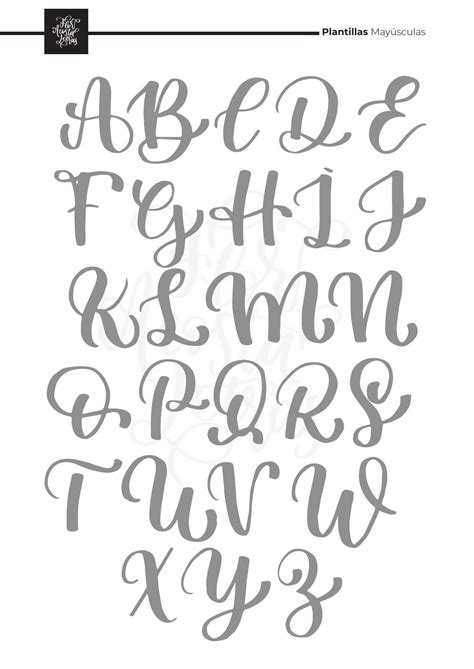 Flor
Plantillas Mayúsculas
A B C D E
F G H I J
K L M N
O P Q R S
T U V W
X Y Z